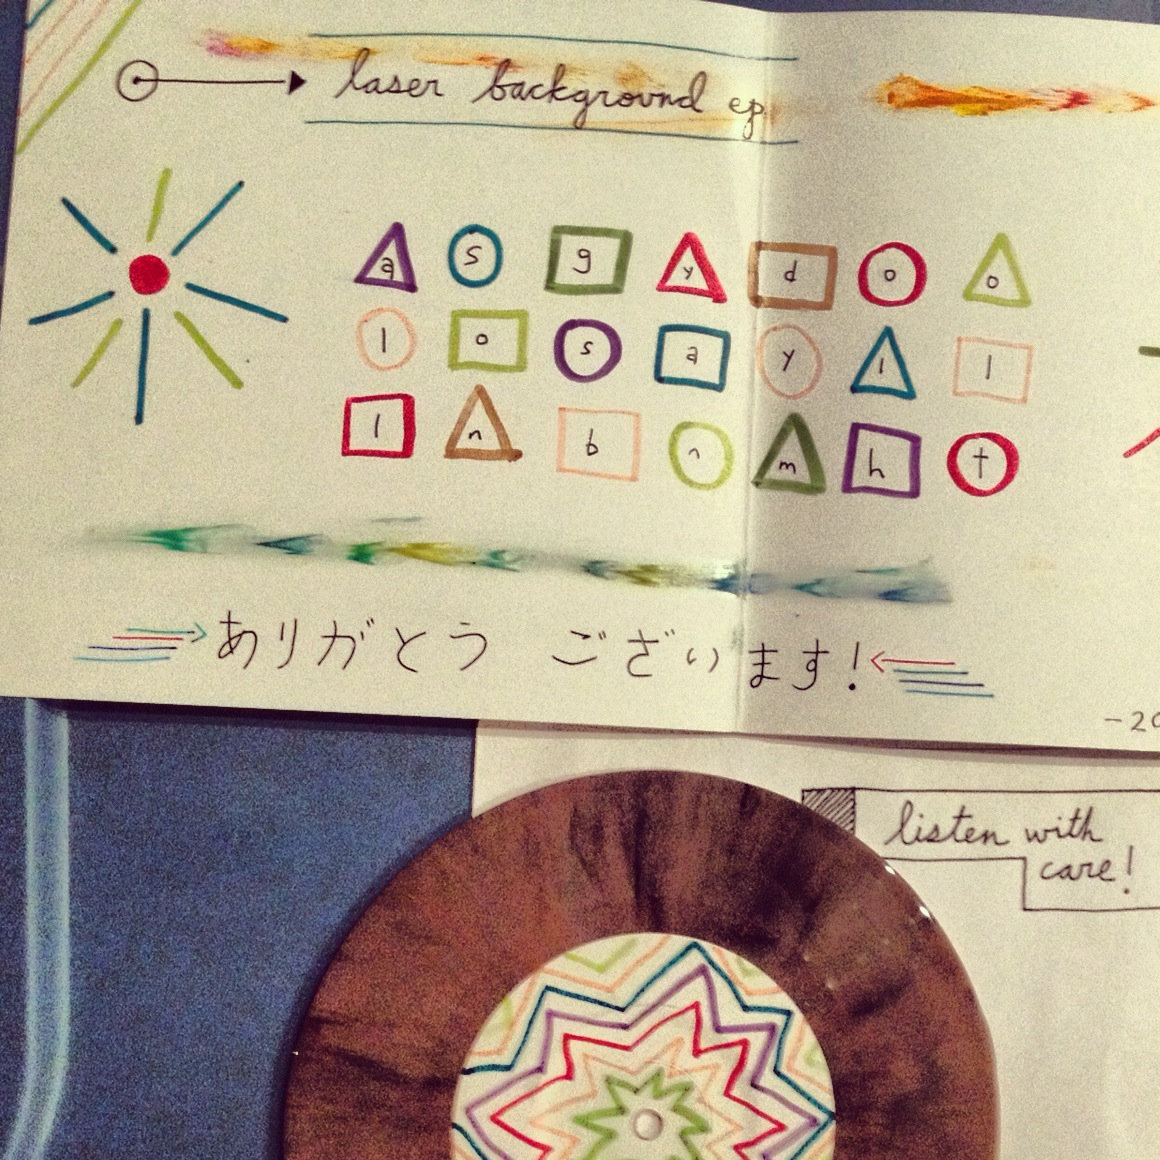 laser background ep
a s g y d o o
l o s a y l l
l n b n m h t
ありがとう ございます!
listen with
care!